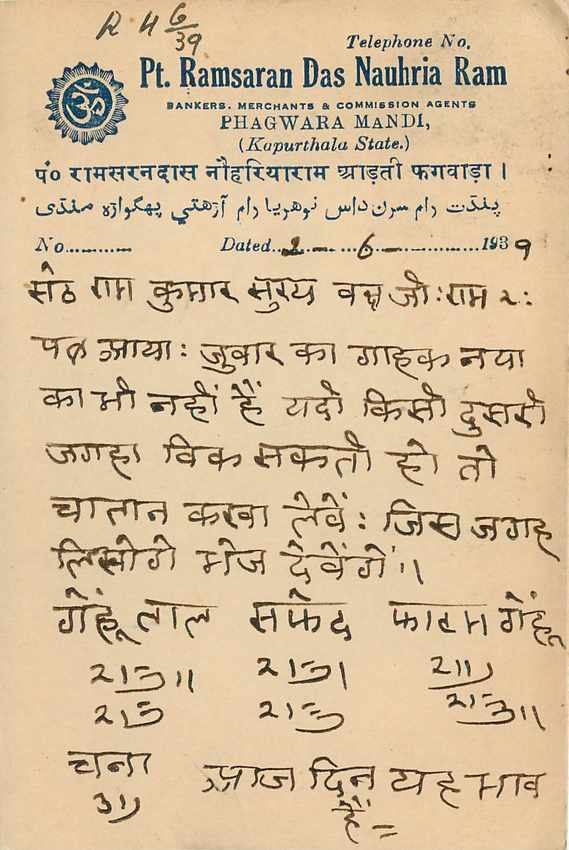 R 4 6/39
Telephone No.
Pt. Ramsaran Das Nauhria Ram
BANKERS. MERCHANTS & COMMISSION AGENTS
PHAGWARA MANDI,
(Kapurthala State.)
ॐ
पं० रामसरनदास नौहरियाराम आड़ती फगवाड़ा ।
پنڈت رام سرن داس نوهريا رام آڑهتي پهگواڑه منڈی
No........... Dated..2--...6-...........1939
सेठ राम कुमार सुरय जी:राम २:
पत्र आया: जुवार का गाहक नया
का भी नहीं हैं यदी किसी दुसरी
जगहा विक सकती हो तो
चालान करवा लेवें: जिस जगह
लिखोगे भेज देवेंगें ॥
गेंहूं लाल सफेद फारम गेंहूं
चना आज दिन यह भाव
हैं=